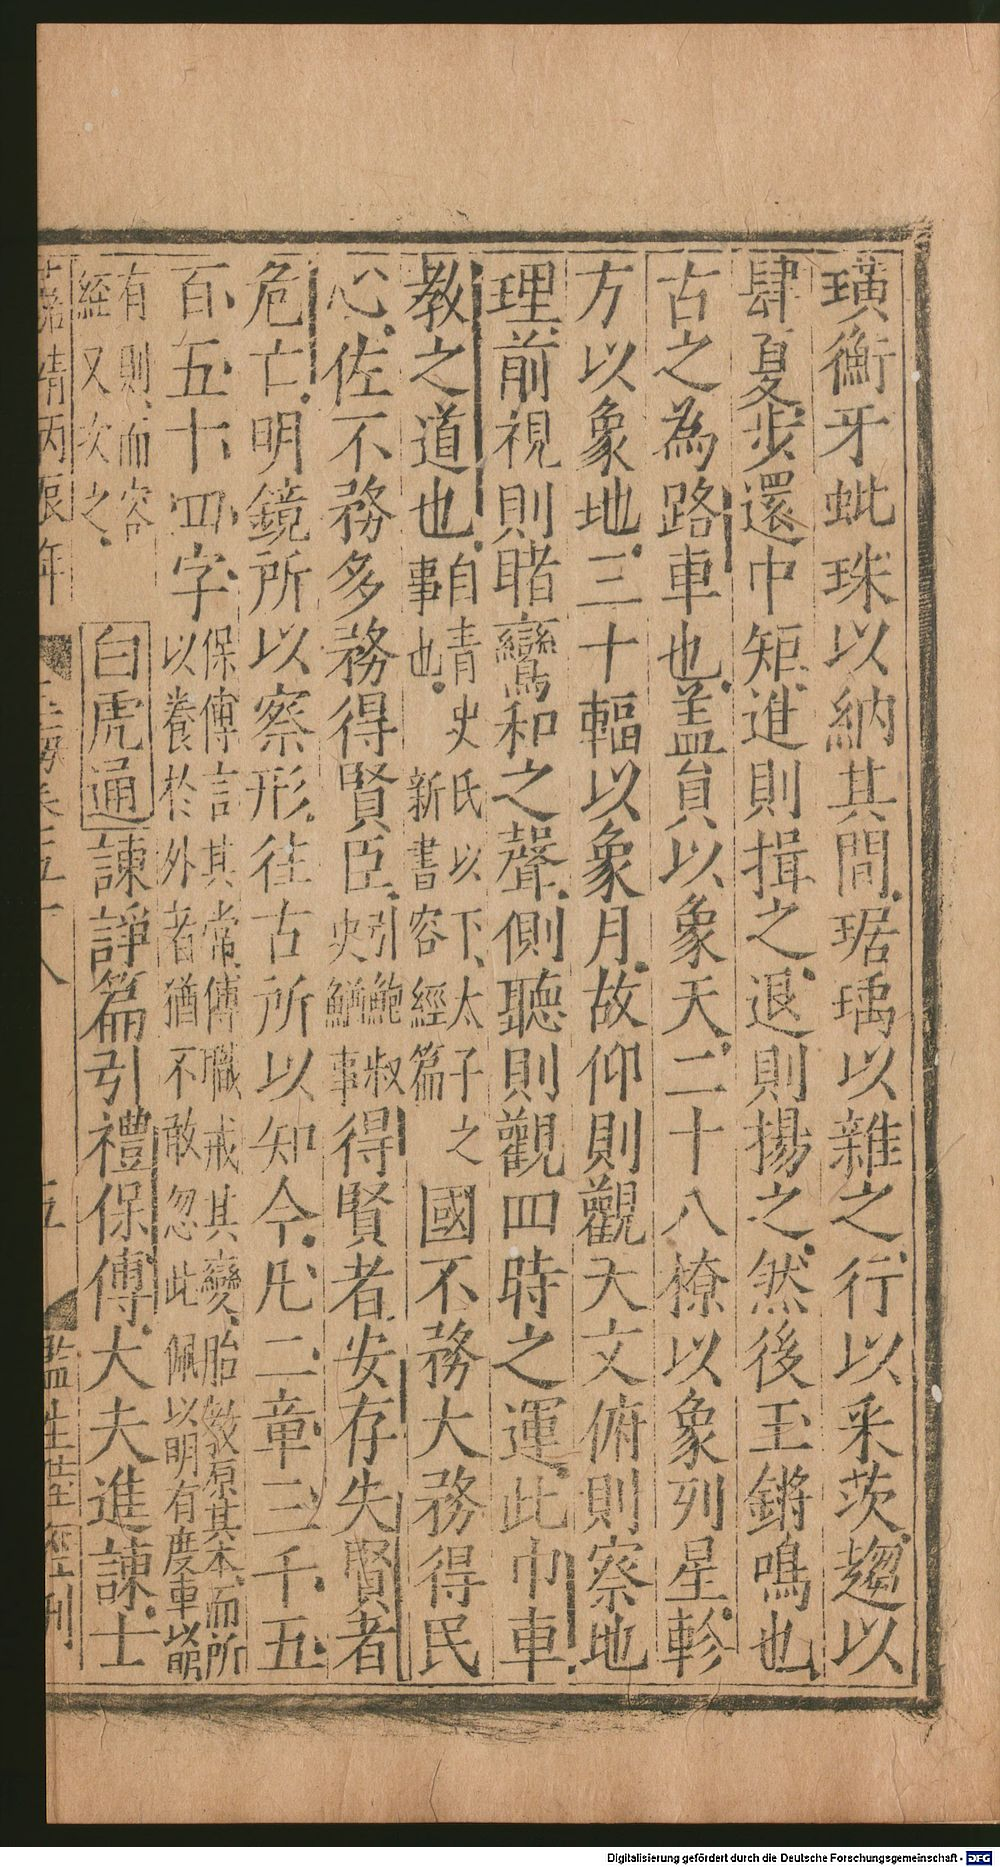 璜衡牙蚍珠以納其間琚瑀以雜之行以采茨趨以
肆夏步還中矩進則揖之退則揚之然後玉鏘鳴也
古之為路車也蓋員以象天二十八橑以象列星軫
方以象地三十輻以象月故仰則觀天文俯則察地
理前視則睹鸞和之聲側聽則觀四時之運此巾車
教之道也自青史氏以下太子之事也新書容經篇國不務大務得民
心佐不務多務得賢臣引鮑叔史鰌事得賢者安存失賢者
危亡明鏡所以察形往古所以知今凡二章三千五
百五十四字保傅言其常傅職戒其變胎教原其本而所以養於外者猶不敢忽此佩以明有度車以明
有則而容經又次之白虎通諫諍篇引禮保傅大夫進諫士
嘉靖丙辰年 五 監生 刊
Digitalisierung gefördert durch die Deutsche Forschungsgemeinschaft - DFG